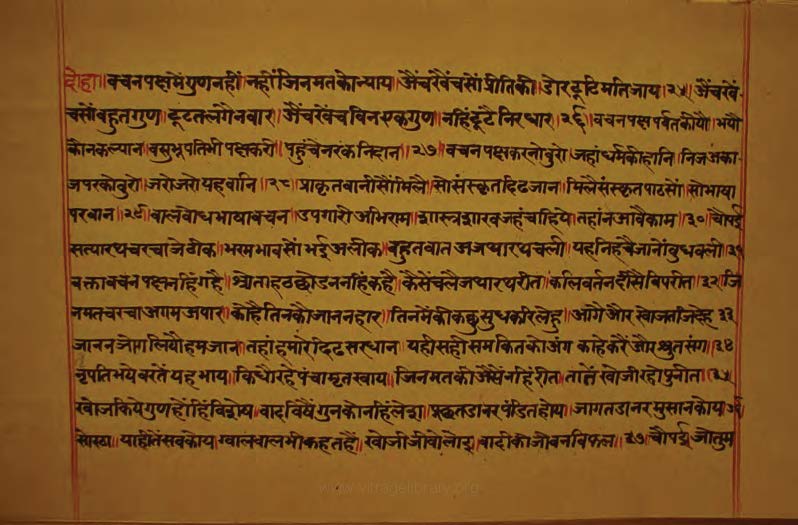 दोहा॥ वचनपक्षमेंगुणनहीं नहींजिनमतकोन्याय॥ अैंचखैंचसोंप्रीतिकी॥ डोरटूटिमतिजाय॥२५॥ अैंचखैं-
चसोंबहुतगुण॥ टूटतलगैनवार॥ अैंचखेंचविनएकगुण॥ नहिंटूटैनिरधार॥२६॥ वचनपक्षपर्वतकीयौ॥ भयौ
कौनकल्यान॥ वसुभूपतिभीपक्षकरी॥ पहुंचेनरकनिदान॥२७॥ वचनपक्षकरनोबुरो॥ जहांधर्मकीहानि॥ निजअका-
जपरकोबुरो॥ जरोजरोयहवानि॥२८॥ प्राकृतवानीसोंमिलै॥ सोसंस्कृतदिढजान॥ मिलैसंस्कृतपाठसों॥ सोभाषा
परवान॥२९॥ बालबोधभाषावचन॥ उपगारीअभिराम॥ शास्त्रशारखजहंचाहिये॥ तहांनआवैकाम॥३०॥ चौपई
सत्यारथचरचाजेठीक॥ भरमभावसोंभईअलीक॥ बहुतबातअजथारथचली॥ यहनिहचैजानोंबुधवली॥३१
वक्तावचनपक्षनहिंगहै॥ श्रोताहठछोडननहिंकहै॥ कैसेंचलैजथारथरीत॥ कलिवर्तनदीसैविपरीत॥३२॥ जि
नमतचरचाअगमअपार॥ कोहैतिनकौजाननहार॥ तिनमेंकीकछुसुधकरिलेहु॥ आगैऔरखोजतजिदेहु ३३
जाननजोगलियौहमजान॥ तहांहमारेदिढसरधान॥ यहीसहीसमकितकोअंग॥ काहेकरैंऔरश्रुतसंग॥३४
नृपतिभयेवरतेंयहभाय॥ किधौंरहेपंचामृतखाय॥ जिनमतकीअैसेंनहिंरीत॥ तातेंखोजीरहोपुनीत॥३५
खोजकियेगुणहोंहिंविशेष॥ वादविषैंगुनकोनहिंलेश॥ पूछतडानरपंडितहोय॥ जागतडानरमुसानकोय॥३६
सोरठा॥ याहीतेंसबकोय॥ ग्वालबालभीकहतहैं॥ खोजीजीवोलोइ॥ वादीकोजीवनविफल॥३७॥ चौपई॥ जोतुम
www.vitragelibrary.org